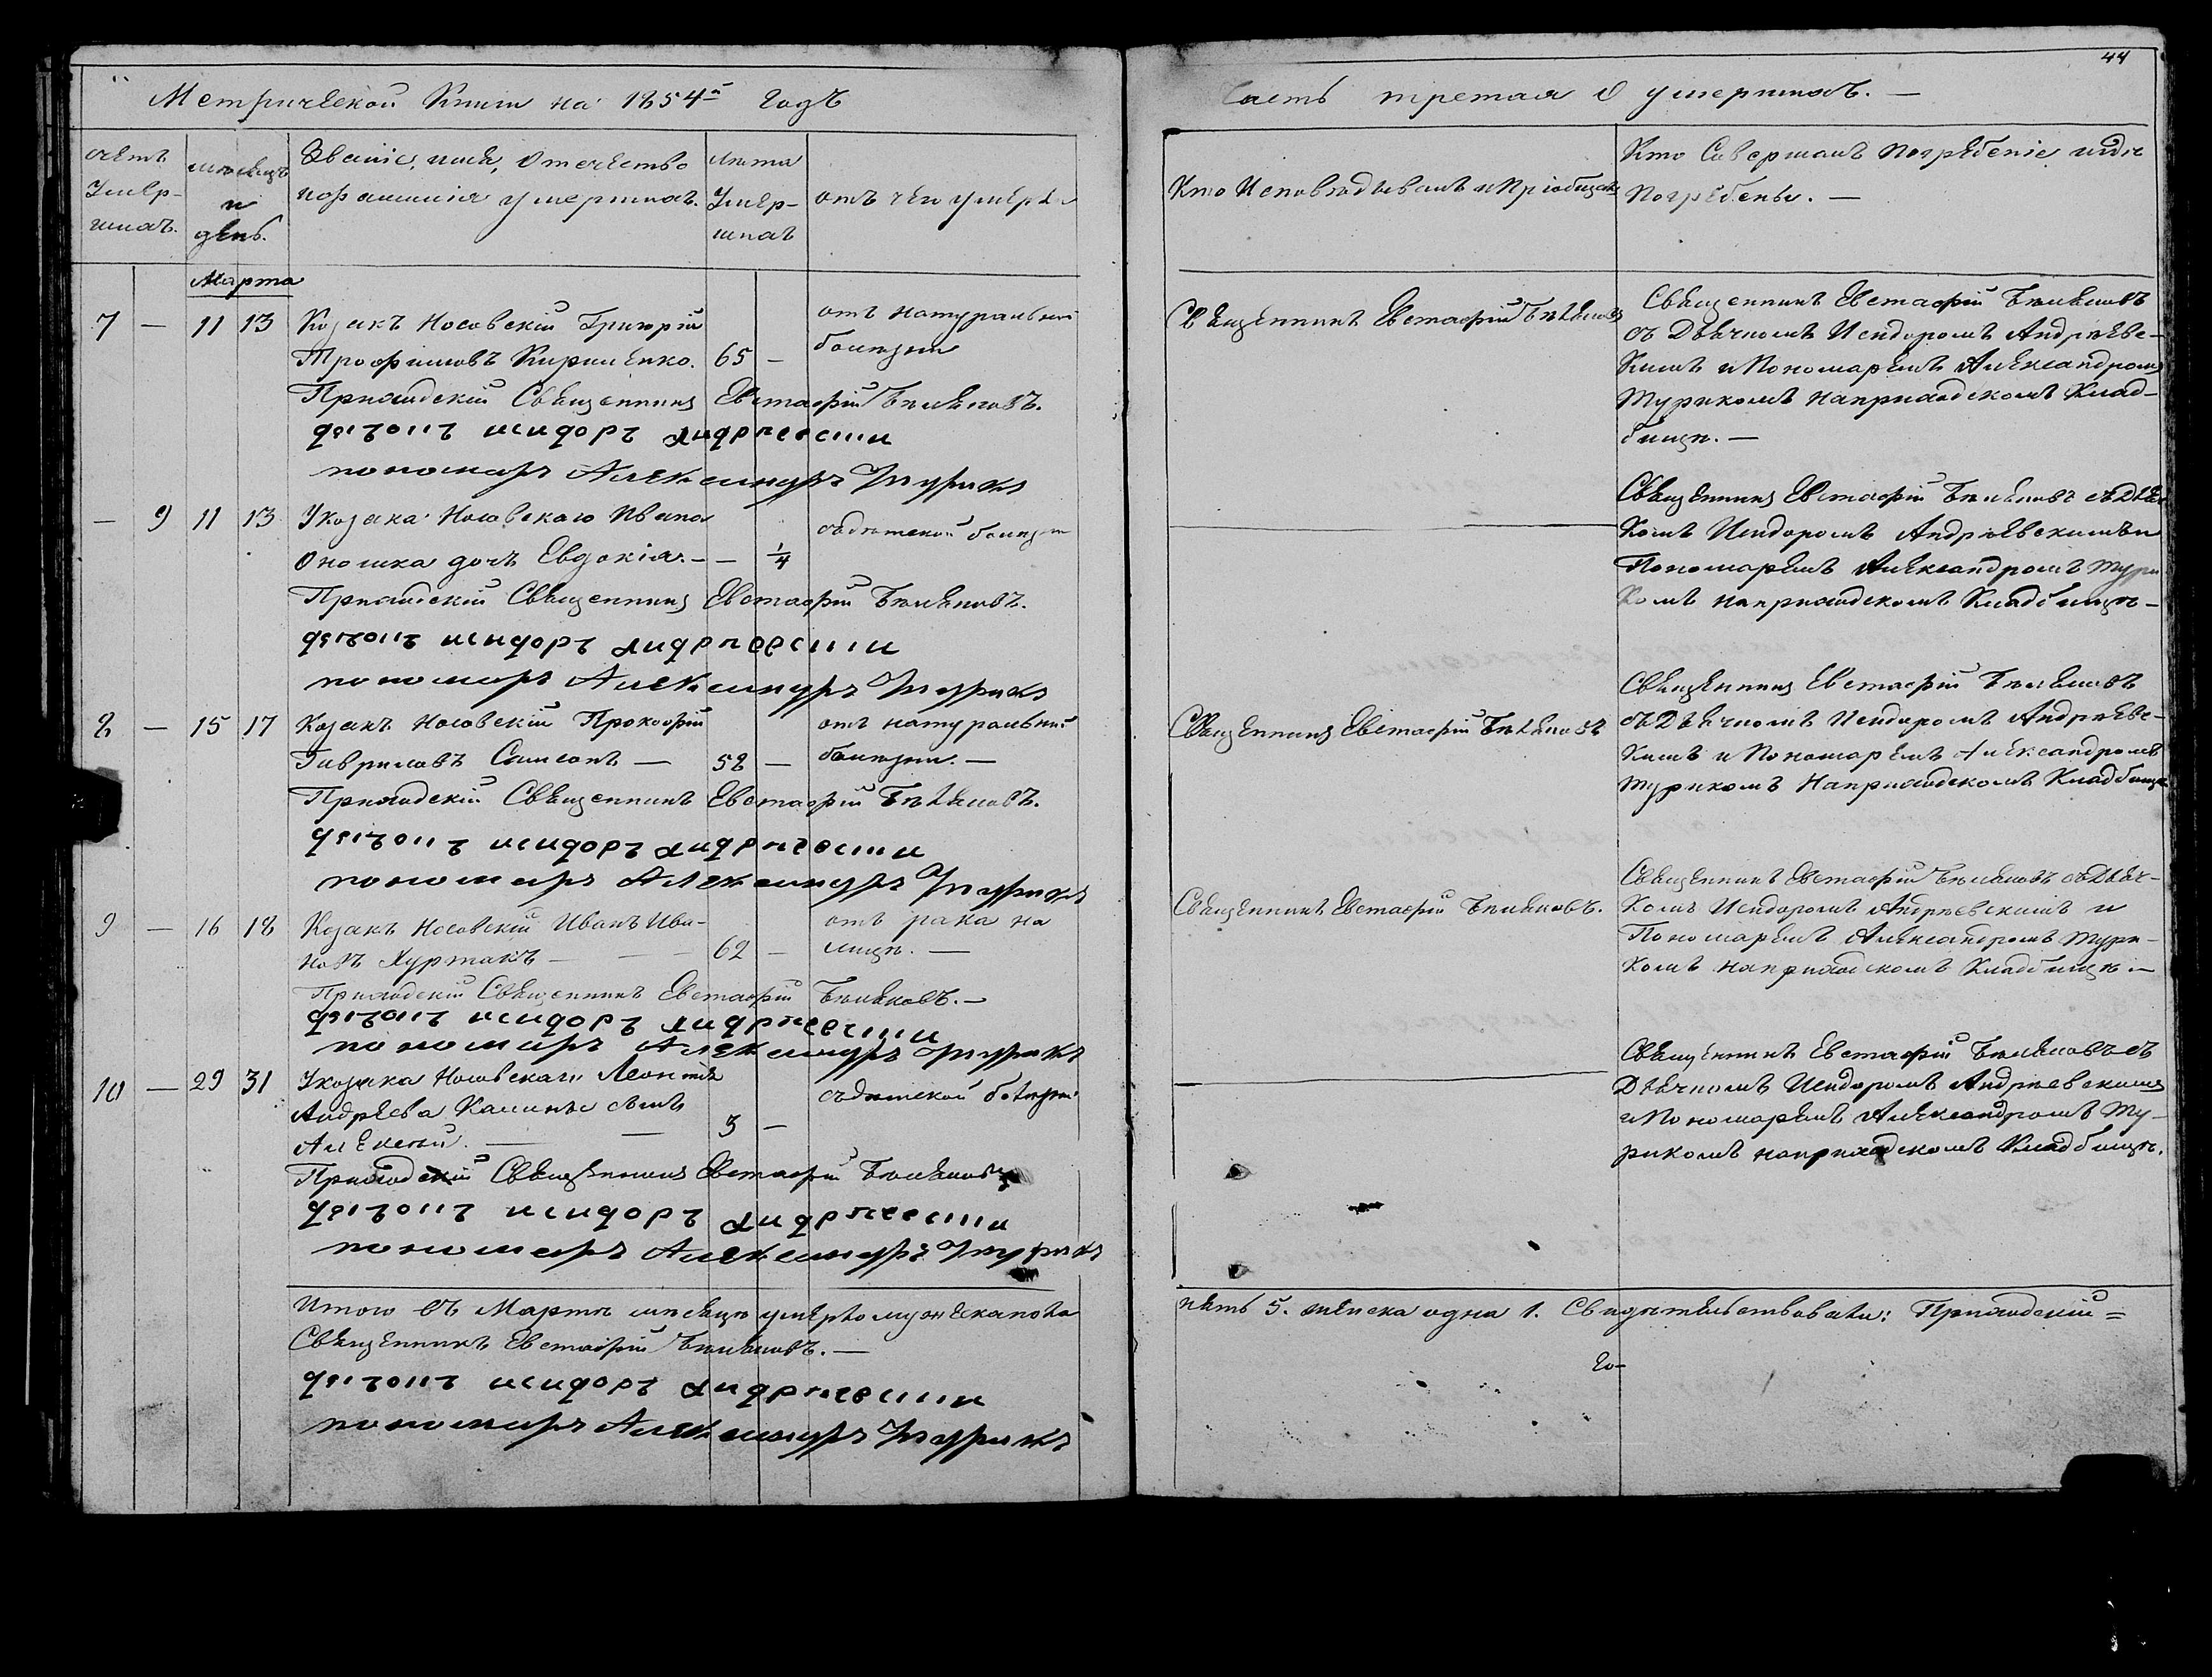 44
Метрической Книги на 1854й годъ
Часть третая о умершихъ. —
счетъ Умер-шихъ.
мѣсяцъ и день.
Званіе, имя, Отечество и фамилія умершихъ.
Лѣта Умер-шихъ
отъ чего умерли
Кто Исповѣдывалъ и Пріобщалъ
Кто Совершалъ Погребеніе и гдѣ Погребены. —
Марта
7 — 11 13 Козакъ Носовскій Григорій
Трофимовъ Кириленко. 65 —
отъ натуральной
болѣзни
Приходскій Священникъ Евстафій Бѣляковъ.
дьячокъ исидоръ андрѣевскій
пономаръ Александръ Турикъ
Священникъ Евстафій Бѣляковъ
Священникъ Евстафій Бѣляковъ
съ Дьячкомъ Исидоромъ Андрѣевс-
кимъ и Пономаремъ Александромъ
Турикомъ на приходскомъ Клад-
бищѣ. —
— 9 11 13 У козака Носовскаго Ивана
Оношка дочь Евдокія. — — 1/4
съ дѣтской болѣзни
Приходскій Священникъ Евстафій Бѣляковъ.
дьячокъ исидоръ андрѣевскій
пономаръ Александръ Турикъ
Священникъ Евстафій Бѣляковъ съ Дьяч
комъ Исидоромъ Андрѣевскимъ и
Пономаремъ Александромъ Тури
комъ на приходскомъ Кладбищѣ —
8 — 15 17 Козакъ Носовскій Прокофій
Гавриловъ Самсонъ — 58 —
отъ натуральной
болѣзни. —
Приходскій Священникъ Евстафій Бѣляковъ.
дьячокъ исидоръ андрѣевскій
пономаръ Александръ Турикъ
Священникъ Евстафій Бѣляковъ
Священникъ Евстафій Бѣляковъ
съ Дьячкомъ Исидоромъ Андрѣевс-
кимъ и Пономаремъ Александромъ
Турикомъ На приходскомъ Кладбище
9 — 16 18 Козакъ Носовскій Иванъ Ива-
новъ Хуртакъ — — — 62 —
отъ рака на
лицѣ. —
Приходскій Священникъ Евстафій Бѣляковъ. —
дьячокъ исидоръ андрѣевскій
пономаръ Александръ Турикъ
Священникъ Евстафій Бѣляковъ.
Священникъ Евстафій Бѣляковъ съ Дьяч-
комъ Исидоромъ Андрѣевскимъ и
Пономаремъ Александромъ Тури-
комъ на приходскомъ Кладбищѣ. —
10 — 29 31 У козака Носовскаго Леонтія
Андреева сынъ
Алексей. — — 3 —
съ дѣтской болѣзни
Приходскій Священникъ Евстафій Бѣляковъ
дьячокъ исидоръ андрѣевскій
пономаръ Александръ Турикъ
Священникъ Евстафій Бѣляковъ съ
Дьячкомъ Исидоромъ Андрѣевскимъ
и Пономаремъ Александромъ Ту-
рикомъ на приходскомъ Кладбищѣ.
Итого въ Мартѣ мѣсяцѣ умерло мужеска пола
пять 5. женска одна 1. Свидѣтельствовали: Приходскій =
Священникъ Евстафій Бѣляковъ. —
дьячокъ исидоръ андрѣевскій
пономаръ Александръ Турикъ